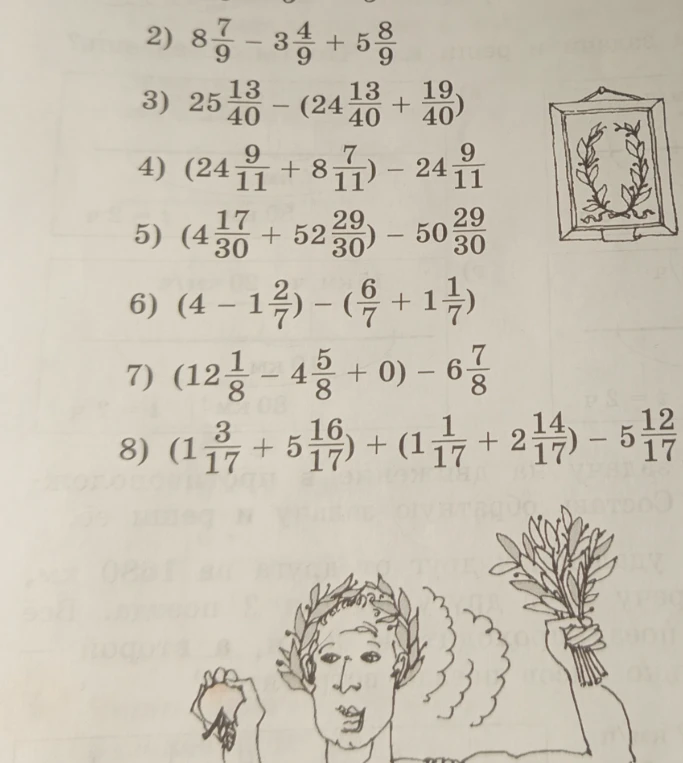 2) 8 7/9 − 3 4/9 + 5 8/9
3) 25 13/40 − (24 13/40 + 19/40)
4) (24 9/11 + 8 7/11) − 24 9/11
5) (4 17/30 + 52 29/30) − 50 29/30
6) (4 − 1 2/7) − (6/7 + 1 1/7)
7) (12 1/8 − 4 5/8 + 0) − 6 7/8
8) (1 3/17 + 5 16/17) + (1 1/17 + 2 14/17) − 5 12/17